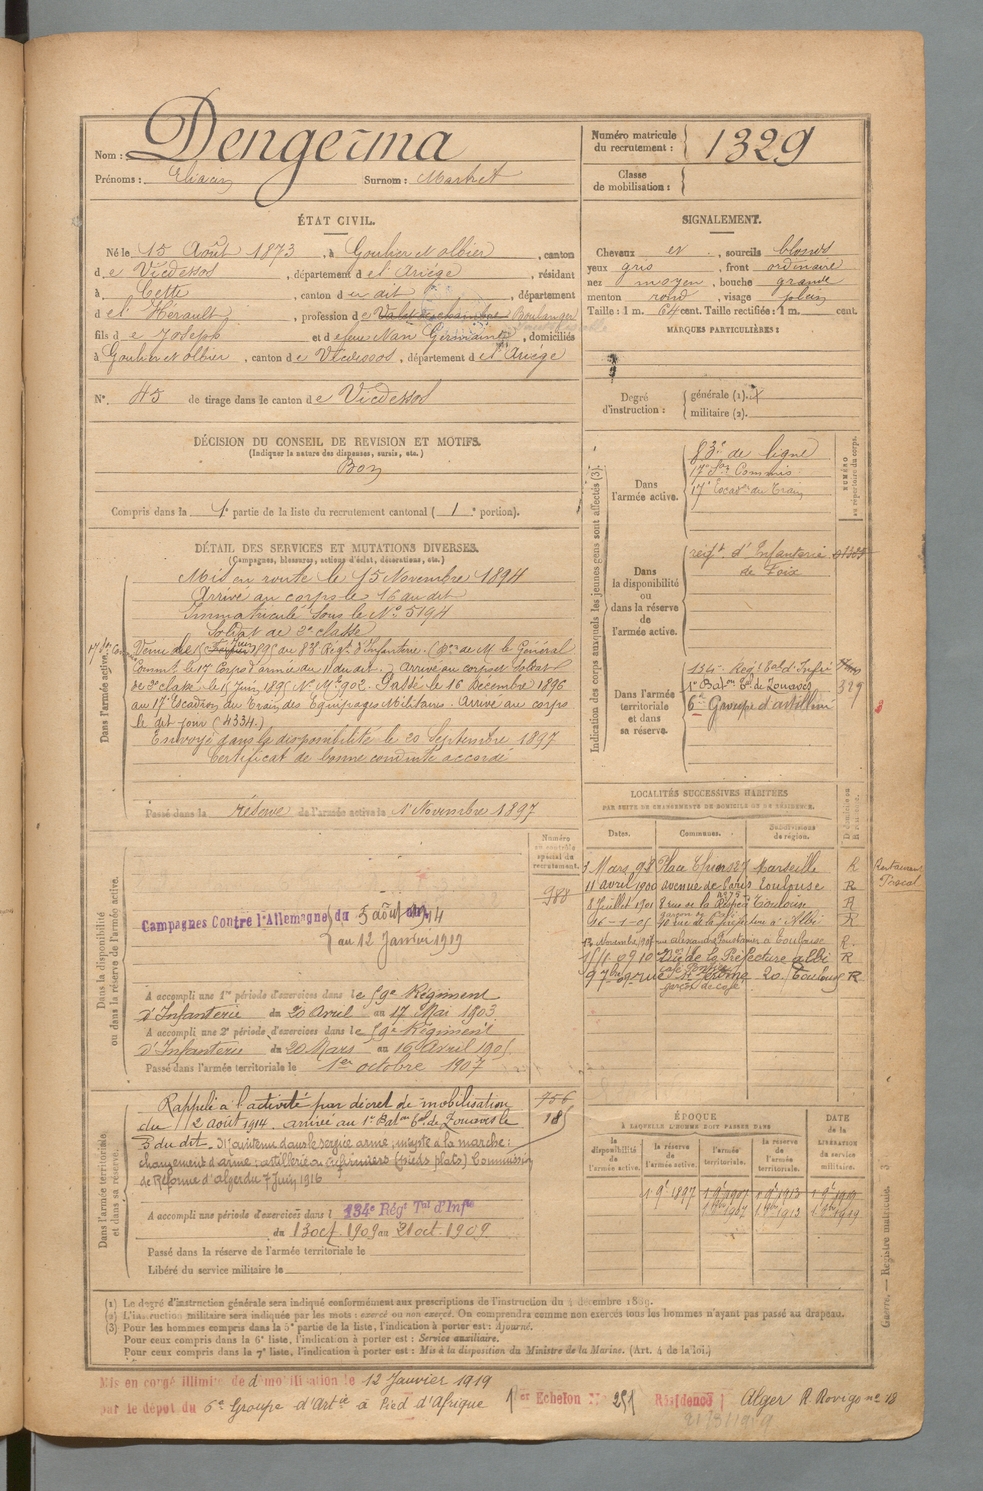 Nom : Dengerma
Prénoms : Surnom : Martret
Numéro matricule du recrutement : 1329
Classe de mobilisation :
ÉTAT CIVIL.
Né le 15 Août 1873, à Goulier et Olbier, canton
de Vicdessos, département de l'Ariège, résidant
à Cette, canton du dit, département
de l'Hérault, profession de Valet de chambre Boulanger
fils de Joseph et de feue Nan Germaine, domiciliés
à Goulier et Olbier, canton de Vicdessos, département de l'Ariège
N°. 45 de tirage dans le canton de Vicdessos
SIGNALEMENT.
Cheveux et, sourcils blonds
yeux gris, front ordinaire
nez moyen, bouche grande
menton rond, visage plein
Taille : 1 m. 64 cent. Taille rectifiée : 1 m. cent.
MARQUES PARTICULIÈRES :
Degré d'instruction : générale (1).
militaire (2).
DÉCISION DU CONSEIL DE REVISION ET MOTIFS.
(Indiquer la nature des dispenses, sursis, etc.)
Bon
Compris dans la 1e partie de la liste du recrutement cantonal ( 1e portion).
DÉTAIL DES SERVICES ET MUTATIONS DIVERSES.
(Campagnes, blessures, actions d'éclat, décorations, etc.)
Dans l'armée active.
Mis en route le 15 Novembre 1894
Arrivé au corps le 16 du dit
Immatriculé sous le N° 5194
Soldat de 2e classe
Venu le 15 Juin 1895 au 83e Régt d'Infanterie. (Don de M. le Général
Commt le 17e Corps d'armée du 11 du dit.) Arrivé au corps et soldat
de 2e classe le 15 Juin 1895 N° Mle 902. Passé le 16 Décembre 1896
au 17e Escadron du Train des Équipages Militaires. Arrivé au corps
le dit jour (4334.)
Envoyé dans la disponibilité le 20 Septembre 1897
Certificat de bonne conduite accordé
Passé dans la réserve de l'armée active le 1er Novembre 1897
Indication des corps auxquels les jeunes gens sont affectés (3).
NUMÉRO au répertoire du corps.
Dans l'armée active.
83e de ligne
17e Son Commis
17e Escadon du Train
Dans la disponibilité ou dans la réserve de l'armée active.
régt d'Infanterie
de Foix
Dans l'armée territoriale et dans sa réserve.
134e Régt Tal d'Infie
1er Baton Tal de Zouaves
6e Groupe d'artillerie
329
LOCALITÉS SUCCESSIVES HABITÉES
PAR SUITE DE CHANGEMENTS DE DOMICILE OU DE RÉSIDENCE.
Dates. Communes. Subdivisions de région.
3 Mars 98 Place Thiers 27 Marseille R Restaurant Pascal
11 avril 1900 avenue de Paris Toulouse R
8 Juillet 1901 8 rue de la Toulouse R
40 rue de la préfecture à Albi R
Novembre 1905 rue alexandre à Toulouse R.
de la Préfecture albi R
garçon de café
Toulouse R
Dans la disponibilité ou dans la réserve de l'armée active.
Numéro au contrôle spécial du recrutement.
988
Campagnes Contre l'Allemagne du 5 août 1914
au 12 Janvier 1919
A accompli une 1re période d'exercices dans le 59e Régiment
d'Infanterie du 20 Avril au 17 Mai 1903.
A accompli une 2e période d'exercices dans le 59e Régiment
d'Infanterie du 20 Mars au 16 Avril 1905.
Passé dans l'armée territoriale le 1er octobre 1907
Dans l'armée territoriale et dans sa réserve.
956
185
Rappelé à l'activité par décret de mobilisation
du 2 août 1914. arrivé au 1er Baton Tal de Zouaves le
5 du dit. Maintenu dans le service armé, inapte à la marche :
changement d'arme : artillerie ou infirmiers (pieds plats) Commission
de Réforme d'Alger du 7 Juin 1916
A accompli une période d'exercices dans l 134e Régt Tal d'Infie
du 13 oct 1909 au 21 oct. 1909
Passé dans la réserve de l'armée territoriale le
Libéré du service militaire le
ÉPOQUE
À LAQUELLE L'HOMME DOIT PASSER DANS
DATE de la LIBÉRATION du service militaire.
la disponibilité de l'armée active. la réserve de l'armée active. l'armée territoriale. la réserve de l'armée territoriale.
1 9e 1897 1 9e 1907 1 9e 1913 1 9e 1919
(1) Le degré d'instruction générale sera indiqué conformément aux prescriptions de l'instruction du 4 décembre 1889.
(2) L'instruction militaire sera indiquée par les mots : exercé ou non exercé. On comprendra comme non exercés tous les hommes n'ayant pas passé au drapeau.
(3) Pour les hommes compris dans la 5e partie de la liste, l'indication à porter est : Ajourné.
Pour ceux compris dans la 6e liste, l'indication à porter est : Service auxiliaire.
Pour ceux compris dans la 7e liste, l'indication à porter est : Mis à la disposition du Ministre de la Marine. (Art. 4 de la loi.)
Guerre. — Registre matricule. 3
Mis en congé illimité de démobilisation le 12 Janvier 1919
par le dépôt du 6e Groupe d'Artie à Pied d'Afrique 1er Echelon N° 251 Résidence : Alger R Rovigo n° 18
21/3/1919